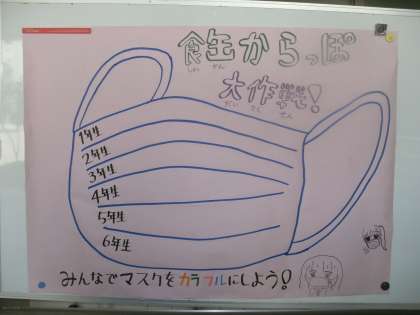 食缶からっぽ
しょっ かん
大作戦!
だい さく せん
1年生
2年生
3年生
4年生
5年生
6年生
みんなでマスクをカラフルにしよう!